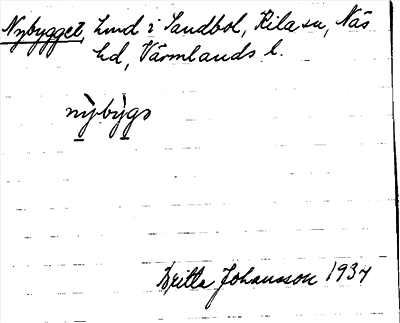 Nybygget, Lund i Sandbol, Kila sn, Näs
hd, Värmlands l.
nỳbỳgs
Britta Johansson 1934